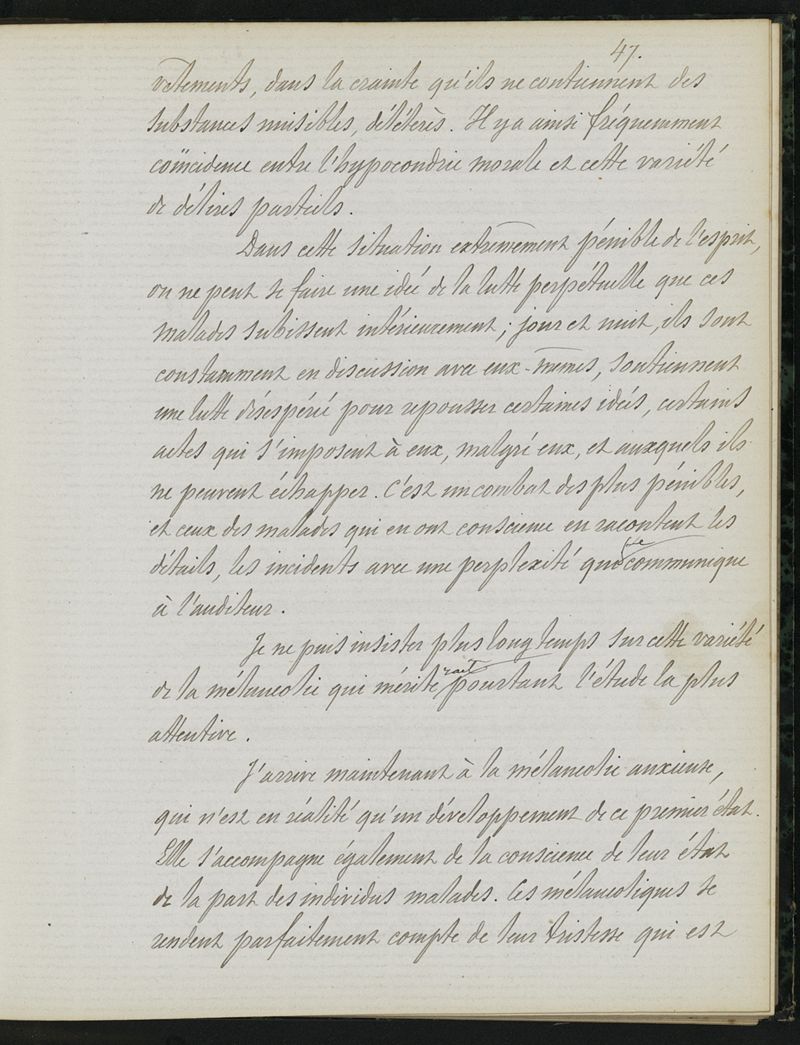 47.
vêtements, dans la crainte qu'ils ne contiennent des
substances nuisibles, délétères. Il y a ainsi fréquemment
coïncidence entre l'hypocondrie morale et cette variété
de délires partiels.
Dans cette situation extrêmement pénible de l'esprit,
on ne peut se faire une idée de la lutte perpétuelle que ces
malades subissent intérieurement ; jour et nuit, ils sont
constamment en discussion avec eux-mêmes, soutiennent
une lutte désespérée pour repousser certaines idées, certains
actes qui s'imposent à eux, malgré eux, et auxquels ils
ne peuvent échapper. C'est un combat des plus pénibles,
et ceux des malades qui en ont conscience en racontent les
détails, les incidents avec une perplexité qui se communique
à l'auditeur.
Je ne puis insister plus longtemps sur cette variété
de la mélancolie qui mériterait pourtant l'étude la plus
attentive.
J'arrive maintenant à la mélancolie anxieuse,
qui n'est en réalité qu'un développement de ce premier état.
Elle s'accompagne également de la conscience de leur état
de la part des individus malades. Ces mélancoliques se
rendent parfaitement compte de leur tristesse qui est